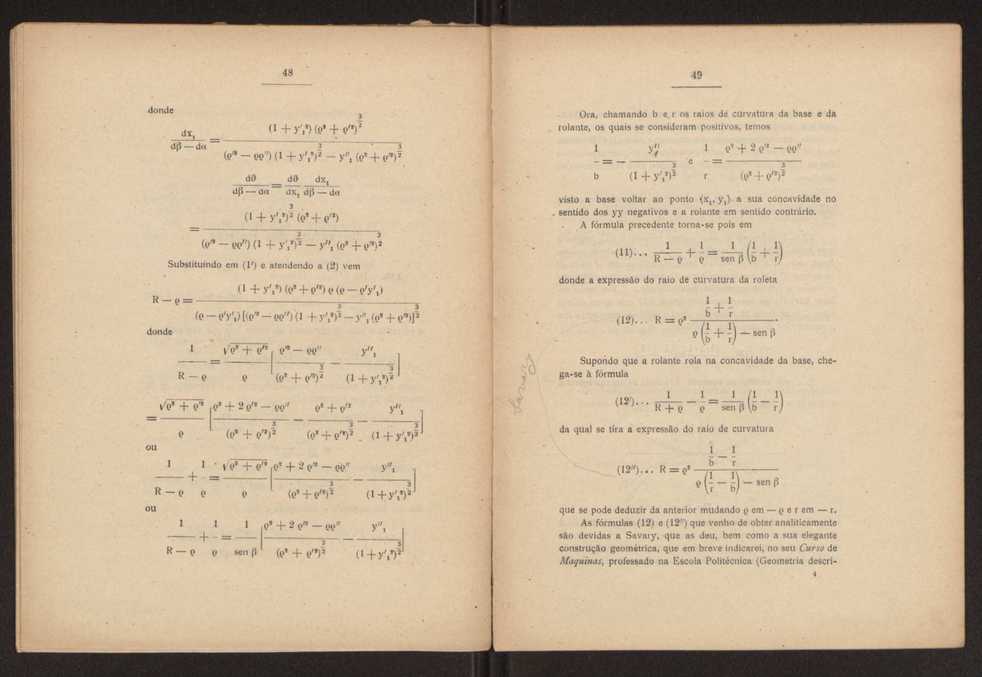 48
donde
dx₁ / (dβ — dα) = (1 + y'₁²) (ϱ² + ϱ'²)^(3/2) / ((ϱ'² — ϱϱ'') (1 + y'₁²)^(3/2) — y''₁ (ϱ² + ϱ'²)^(3/2))
dϑ / (dβ — dα) = dϑ / dx₁ · dx₁ / (dβ — dα)
= (1 + y'₁²)^(3/2) (ϱ² + ϱ'²) / ((ϱ'² — ϱϱ'') (1 + y'₁²)^(3/2) — y''₁ (ϱ² + ϱ'²)^(3/2))
Substituindo em (1') e atendendo a (2) vem
R — ϱ = (1 + y'₁²) (ϱ² + ϱ'²) ϱ (ϱ — ϱ'y'₁) / ((ϱ — ϱ'y'₁) [(ϱ'² — ϱϱ'') (1 + y'₁²)^(3/2) — y''₁ (ϱ² + ϱ'²)]^(3/2))
donde
1 / (R — ϱ) = √(ϱ² + ϱ'²) / ϱ [(ϱ'² — ϱϱ'') / (ϱ² + ϱ'²)^(3/2) — y''₁ / (1 + y'₁²)^(3/2)]
= √(ϱ² + ϱ'²) / ϱ [(ϱ² + 2 ϱ'² — ϱϱ'') / (ϱ² + ϱ'²)^(3/2) — (ϱ² + ϱ'²) / (ϱ² + ϱ'²)^(3/2) — y''₁ / (1 + y'₁²)^(3/2)]
ou
1 / (R — ϱ) + 1 / ϱ = √(ϱ² + ϱ'²) / ϱ [(ϱ² + 2 ϱ'² — ϱϱ'') / (ϱ² + ϱ'²)^(3/2) — y''₁ / (1 + y'₁²)^(3/2)]
ou
1 / (R — ϱ) + 1 / ϱ = 1 / sen β [(ϱ² + 2 ϱ'² — ϱϱ'') / (ϱ² + ϱ'²)^(3/2) — y''₁ / (1 + y'₁²)^(3/2)]
49
Ora, chamando b e r os raios de curvatura da base e da
rolante, os quais se consideram positivos, temos
1 / b = — y''₁ / (1 + y'₁²)^(3/2) e 1 / r = (ϱ² + 2 ϱ'² — ϱϱ'') / (ϱ² + ϱ'²)^(3/2)
visto a base voltar ao ponto (x₁, y₁) a sua concavidade no
sentido dos yy negativos e a rolante em sentido contrário.
A fórmula precedente torna-se pois em
(11)... 1 / (R — ϱ) + 1 / ϱ = 1 / sen β (1/b + 1/r)
donde a expressão do raio de curvatura da roleta
(12)... R = ϱ² (1/b + 1/r) / (ϱ (1/b + 1/r) — sen β).
Supondo que a rolante rola na concavidade da base, che-
ga-se à fórmula
(12')... 1 / (R + ϱ) — 1 / ϱ = 1 / sen β (1/b — 1/r)
da qual se tira a expressão do raio de curvatura
(12'')... R = ϱ² (1/b — 1/r) / (ϱ (1/r — 1/b) — sen β)
que se pode deduzir da anterior mudando ϱ em — ϱ e r em — r.
As fórmulas (12) e (12'') que venho de obter analiticamente
são devidas a Savary, que as deu, bem como a sua elegante
construção geométrica, que em breve indicarei, no seu Curso de
Maquinas, professado na Escola Politécnica (Geometria descri-
4
Savary